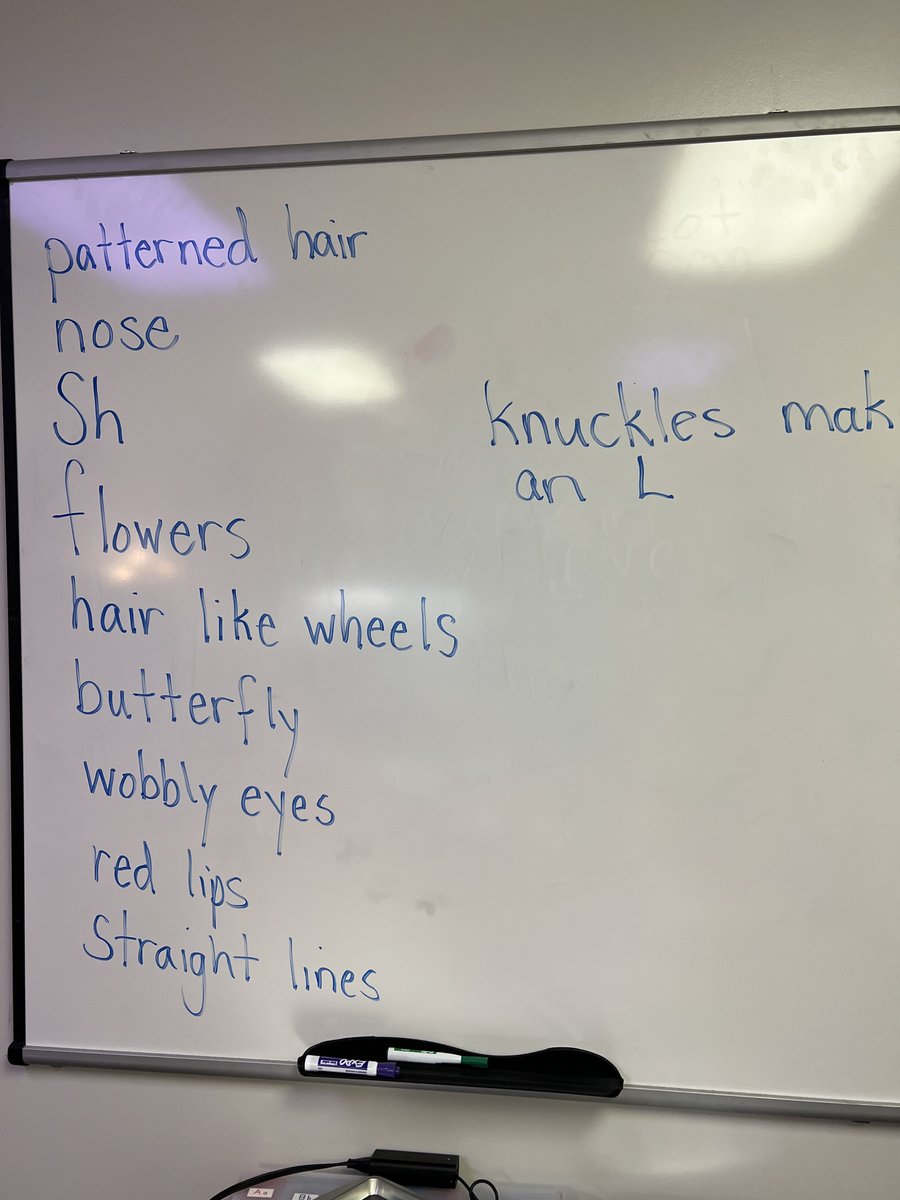 patterned hair
nose
Sh
flowers
hair like wheels
butterfly
wobbly eyes
red lips
Straight lines
knuckles mak
an L
EXPO
Aa
Bb